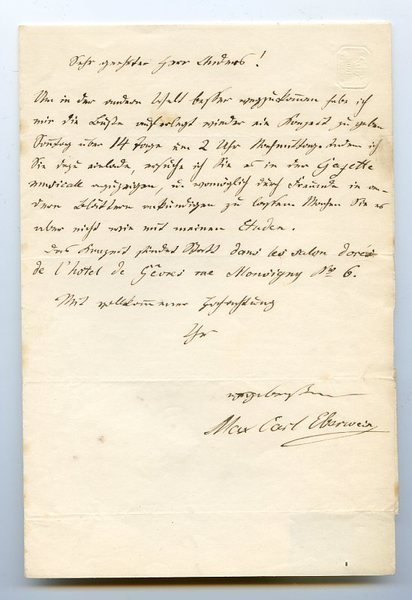 Sehr geehrter Herr Anders!
Um in der andern Welt besser wegzukommen habe ich
mir die Buße auferlegt wieder ein Konzert zu geben
Sonntag über 14 Tage um 2 Uhr Nachmittags. Indem ich
Sie dazu einlade, ersuche ich Sie es in der Gazette
musicale anzuzeigen, u womöglich durch Freunde in an-
dern Blättern verkündigen zu lassen. Machen Sie es
aber nicht wie mit meinen Etuden.
Das Konzert findet Statt dans les salon dorés
de l'hotel de Gêvres rue Monsigny No 6.
Mit vollkommener Hochachtung
Ihr
ergebenster
Max Carl Eberwein